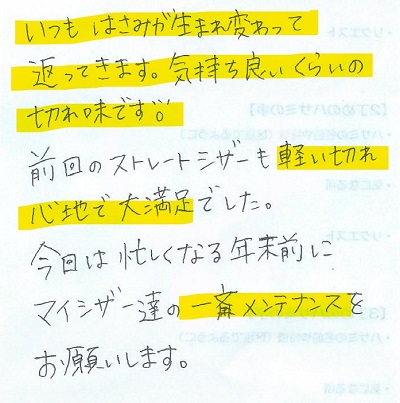 いつも はさみが生まれ変わって
返ってきます。気持ち良いくらいの
切れ味です!!
前回のストレートシザーも軽い切れ
心地で大満足でした。
今回は忙しくなる年末前に
マイシザー達の一斉メンテナンスを
お願いします。